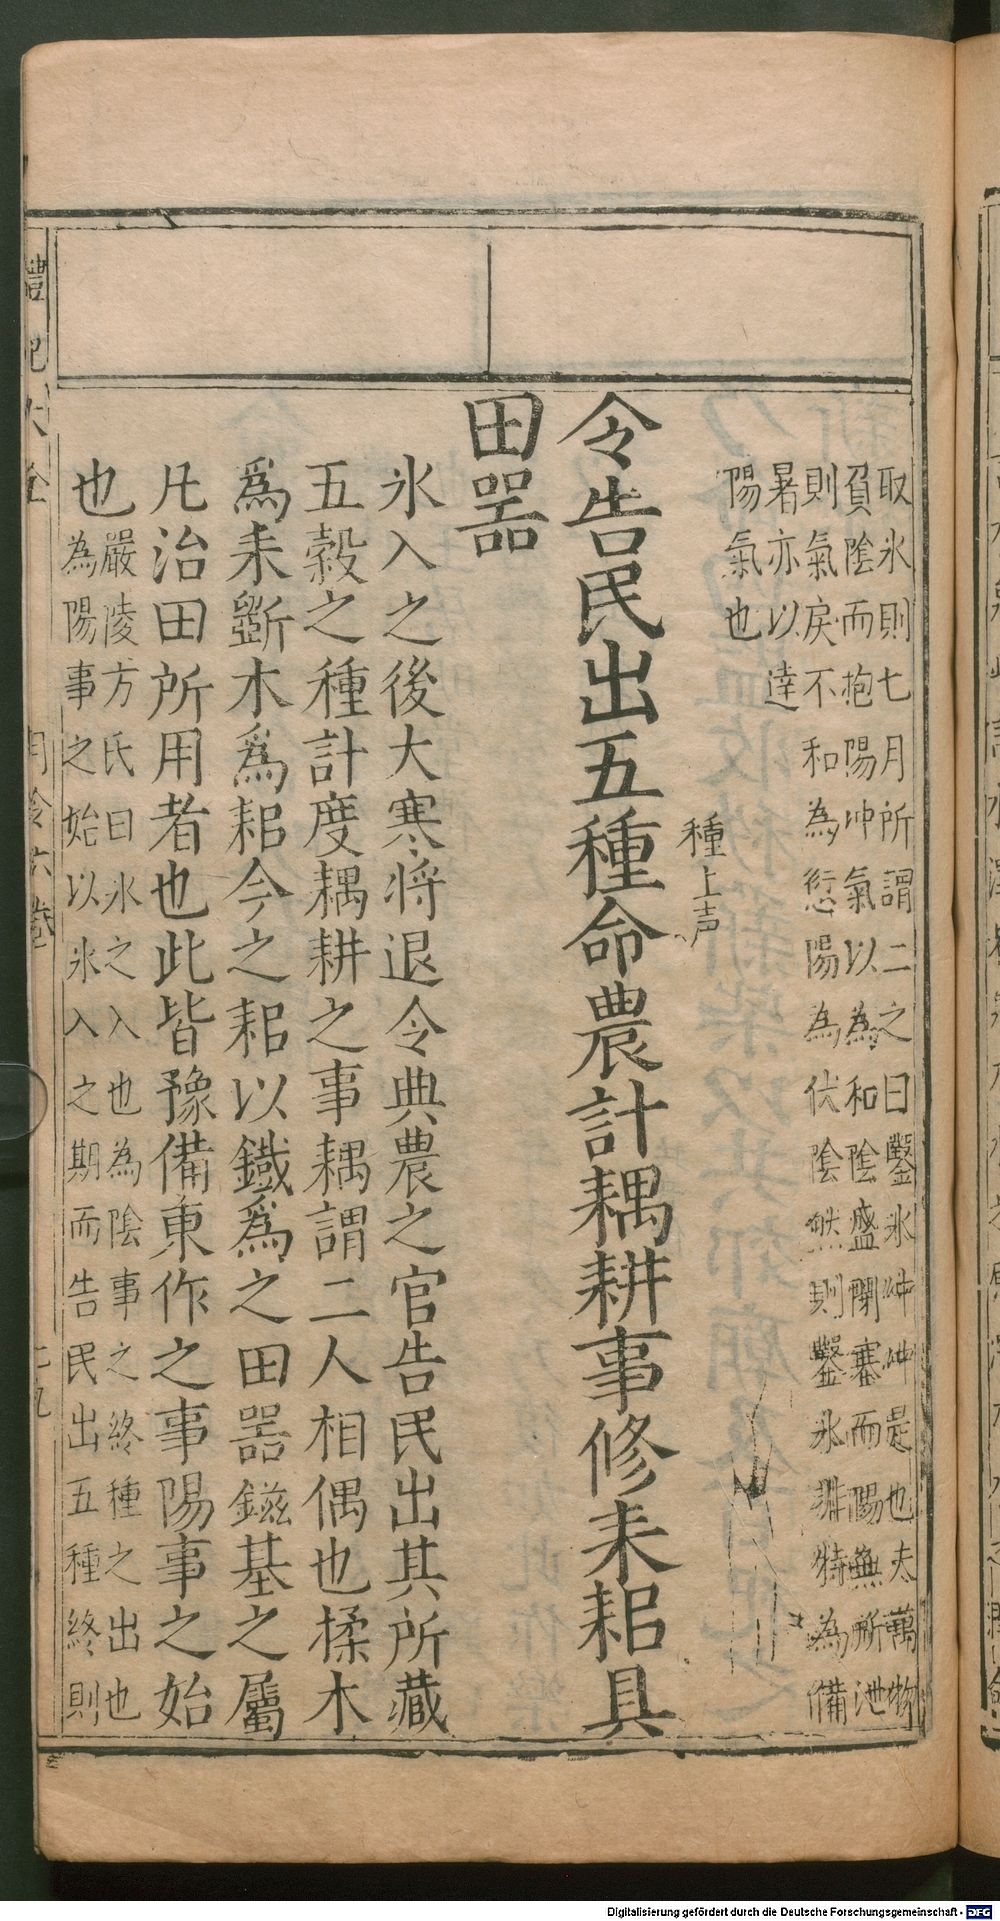 取氷則七月所謂二之日鑿氷冲冲是也夫萬物
負陰而抱陽冲氣以為和陰盛閉塞而陽無所泄
則氣戾不和為愆陽為伏陰然則鑿氷非特為備
暑亦以達
陽氣也
種上声
令告民出五種命農計耦耕事修耒耜具
田器
氷入之後大寒將退令典農之官告民出其所藏
五穀之種計度耦耕之事耦謂二人相偶也揉木
爲耒斵木爲耜今之耜以鐵爲之田器鎡基之屬
凡治田所用者也此皆豫備東作之事陽事之始
也
嚴陵方氏曰氷之入也為陰事之終種之出也
為陽事之始以氷入之期而告民出五種終則
禮記大全
月令六卷
二九
Digitalisierung gefördert durch die Deutsche Forschungsgemeinschaft - DFG